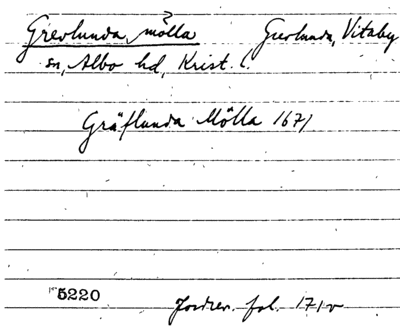 Grevlunda mölla Grevlunda, Vitaby
sn, Albo hd, Krist. l.
Gräflunda Mölla 1671
5220 Jordrev. fol. 171v